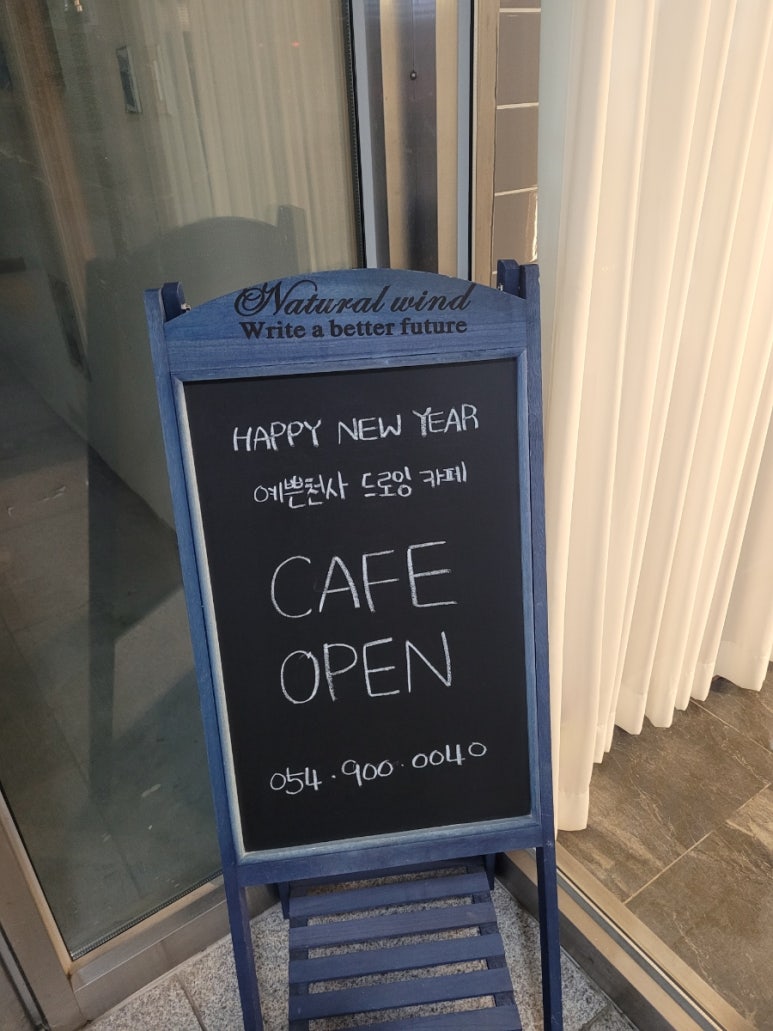 Natural wind
Write a better future
HAPPY NEW YEAR
예쁜천사 드로잉 카페
CAFE
OPEN
054.900.0040